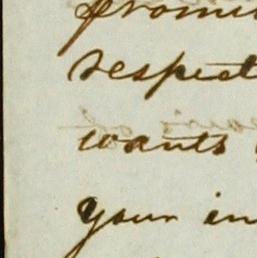 promi
respect
wants
your in